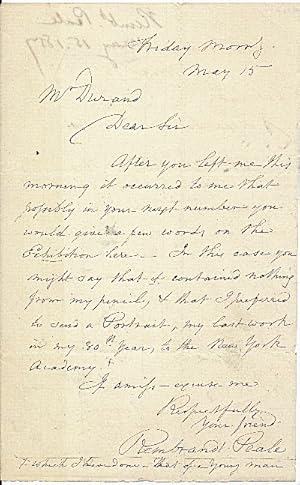 Friday Morng.
May 15
Mr Durand
Dear Sir
After you left me this
morning it occurred to me that
possibly in your next number you
would give a few words on the
Exhibition here — In this case you
might say that it contained nothing
from my pencil, & that I preferred
to send a Portrait, my last work
in my 80th Year, to the New York
Academy.+
If amiss — excuse me
Respectfully
Your friend
Rembrandt Peale
+ Which I have done — that of a young man